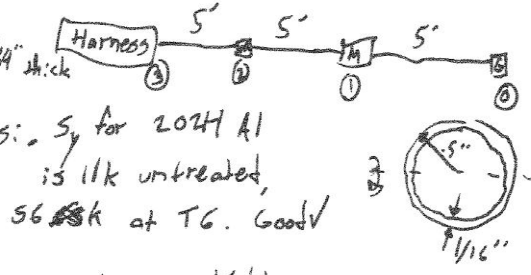 5' 5' 5'
Harness M S
4" thick
③ ② ① ⓪
Sy for 2024 Al
is 11k untreated,
56 k at T6. Good √
.5"
1/16"